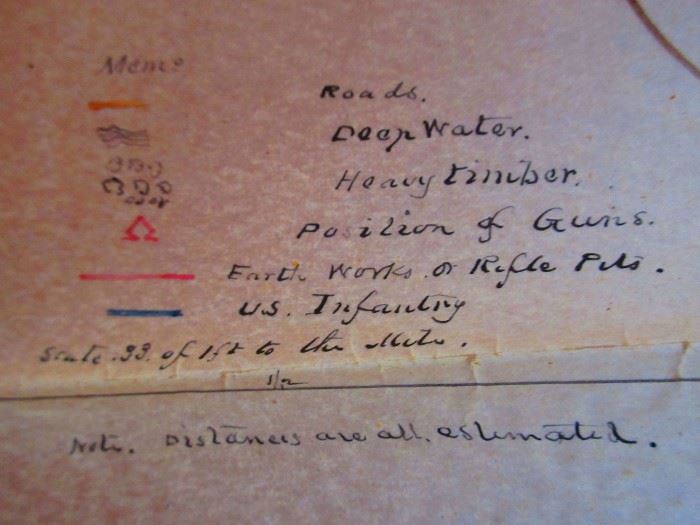 Memo
Roads.
Deep Water.
Heavy timber.
Position of Guns.
Earth Works or Rifle Pits.
U.S. Infantry
Scale .33. of 1ft to the Mile.
1/12
Note. Distances are all. estimated.